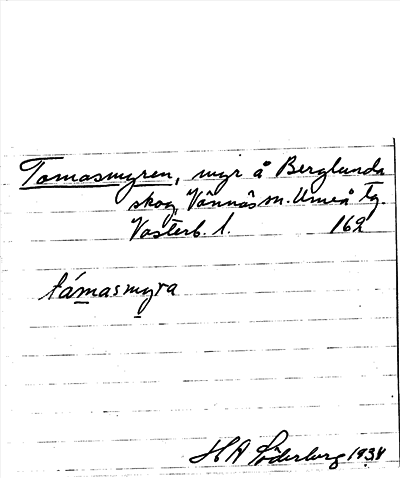 Tomasmyren, myr å Berglunda
skog, Vännäs m. Umeå tg.
Västerb. l. 162
támasmyra
H A Söderberg 1934